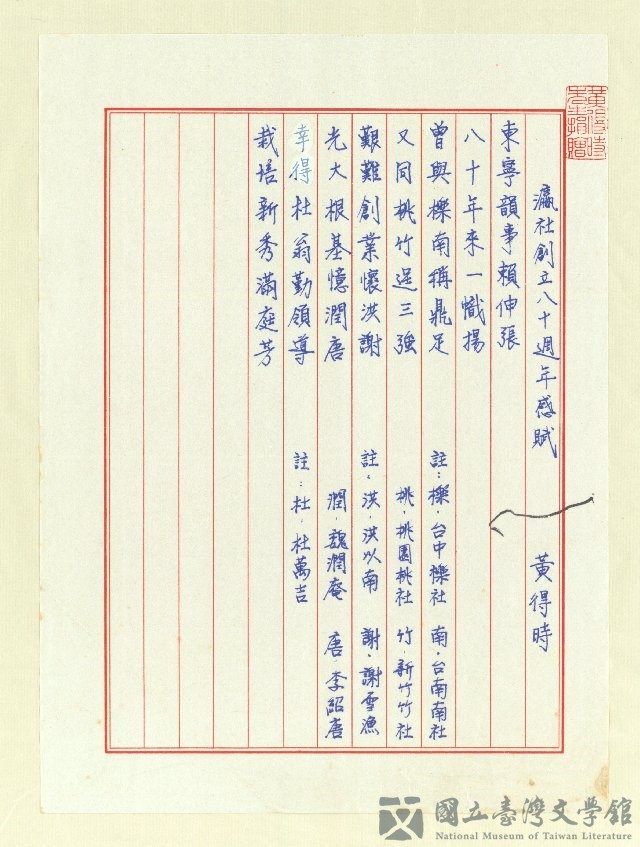 瀛社創立八十週年感賦 黃得時
東寧韻事賴伸張
八十年來一幟揚
曾與櫟南稱鼎足 註：櫟，台中櫟社 南，台南南社
又同桃竹逞三強 桃，桃園桃社 竹，新竹竹社
艱難創業懷洪謝 註，洪，洪以南 謝，謝雪漁
光大根基憶潤唐 潤，魏潤庵 唐，李紹唐
幸得杜翁勤領導 註：杜，杜萬吉
栽培新秀滿庭芳
黃得時
先生捐贈
國立臺灣文學館
National Museum of Taiwan Literature